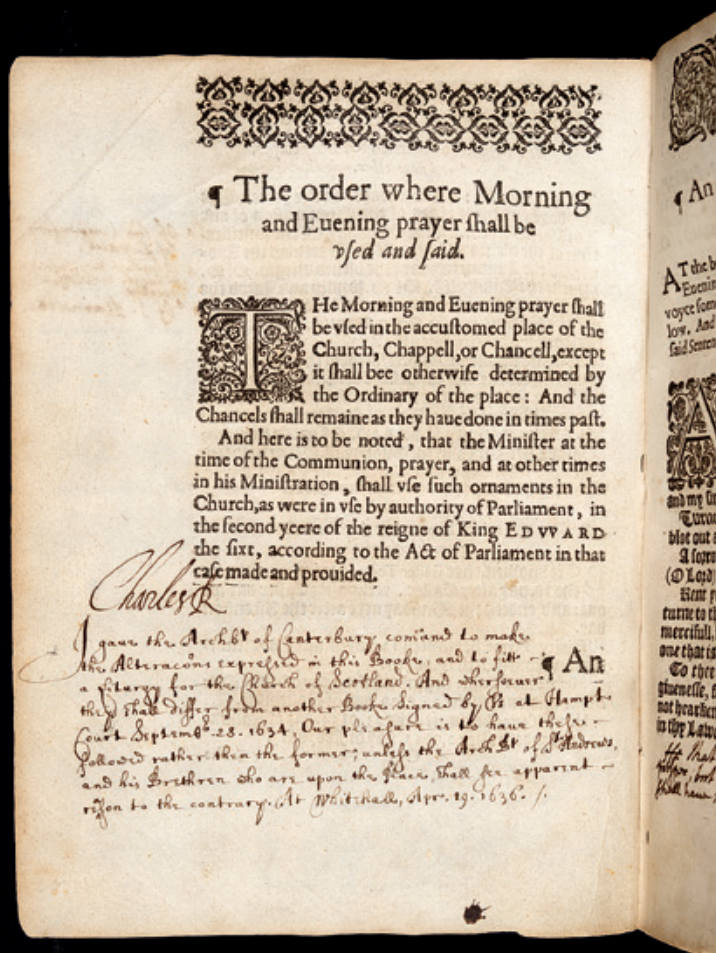 ¶ The order where Morning
and Euening prayer ſhall be
vſed and ſaid.
THe Morning and Euening prayer ſhall
be vſed in the accuſtomed place of the
Church, Chappell, or Chancell, except
it ſhall bee otherwiſe determined by
the Ordinary of the place: And the
Chancels ſhall remaine as they haue done in times paſt.
And here is to be noted, that the Miniſter at the
time of the Communion, prayer, and at other times
in his Miniſtration, ſhall vſe ſuch ornaments in the
Church, as were in vſe by authority of Parliament, in
the ſecond yeere of the reigne of King EDVVARD
the ſixt, according to the Act of Parliament in that
caſe made and prouided.
Charles R
I gaue the Archbp of Canterbury comand to make
the Alteracons expreſsed in this Booke, and to fitt
¶ An
a Liturgy for the Church of Scotland. And wherſoeuer
they ſhall differ from another Booke Signed by Us at Hampt:
Court Septemb. 28. 1634. Our pleaſure is to haue theſe
followed rather then the former; unleſs the ArchBp of St Andrews,
and his Brethren who are upon the place, ſhall ſee apparent
reaſon to the contrary. At Whitehall, Apr. 19. 1636.
¶ An
AT the b
Euenin
voyce ſom
low. And
ſaid Senten
A
and my ſin
Turne
blot out a
A ſorro
(O Lord)
Rent y
turne to th
mercifull,
one that is
To thee
giueneſſe, f
not hearken
in thy Law
ſhall haue